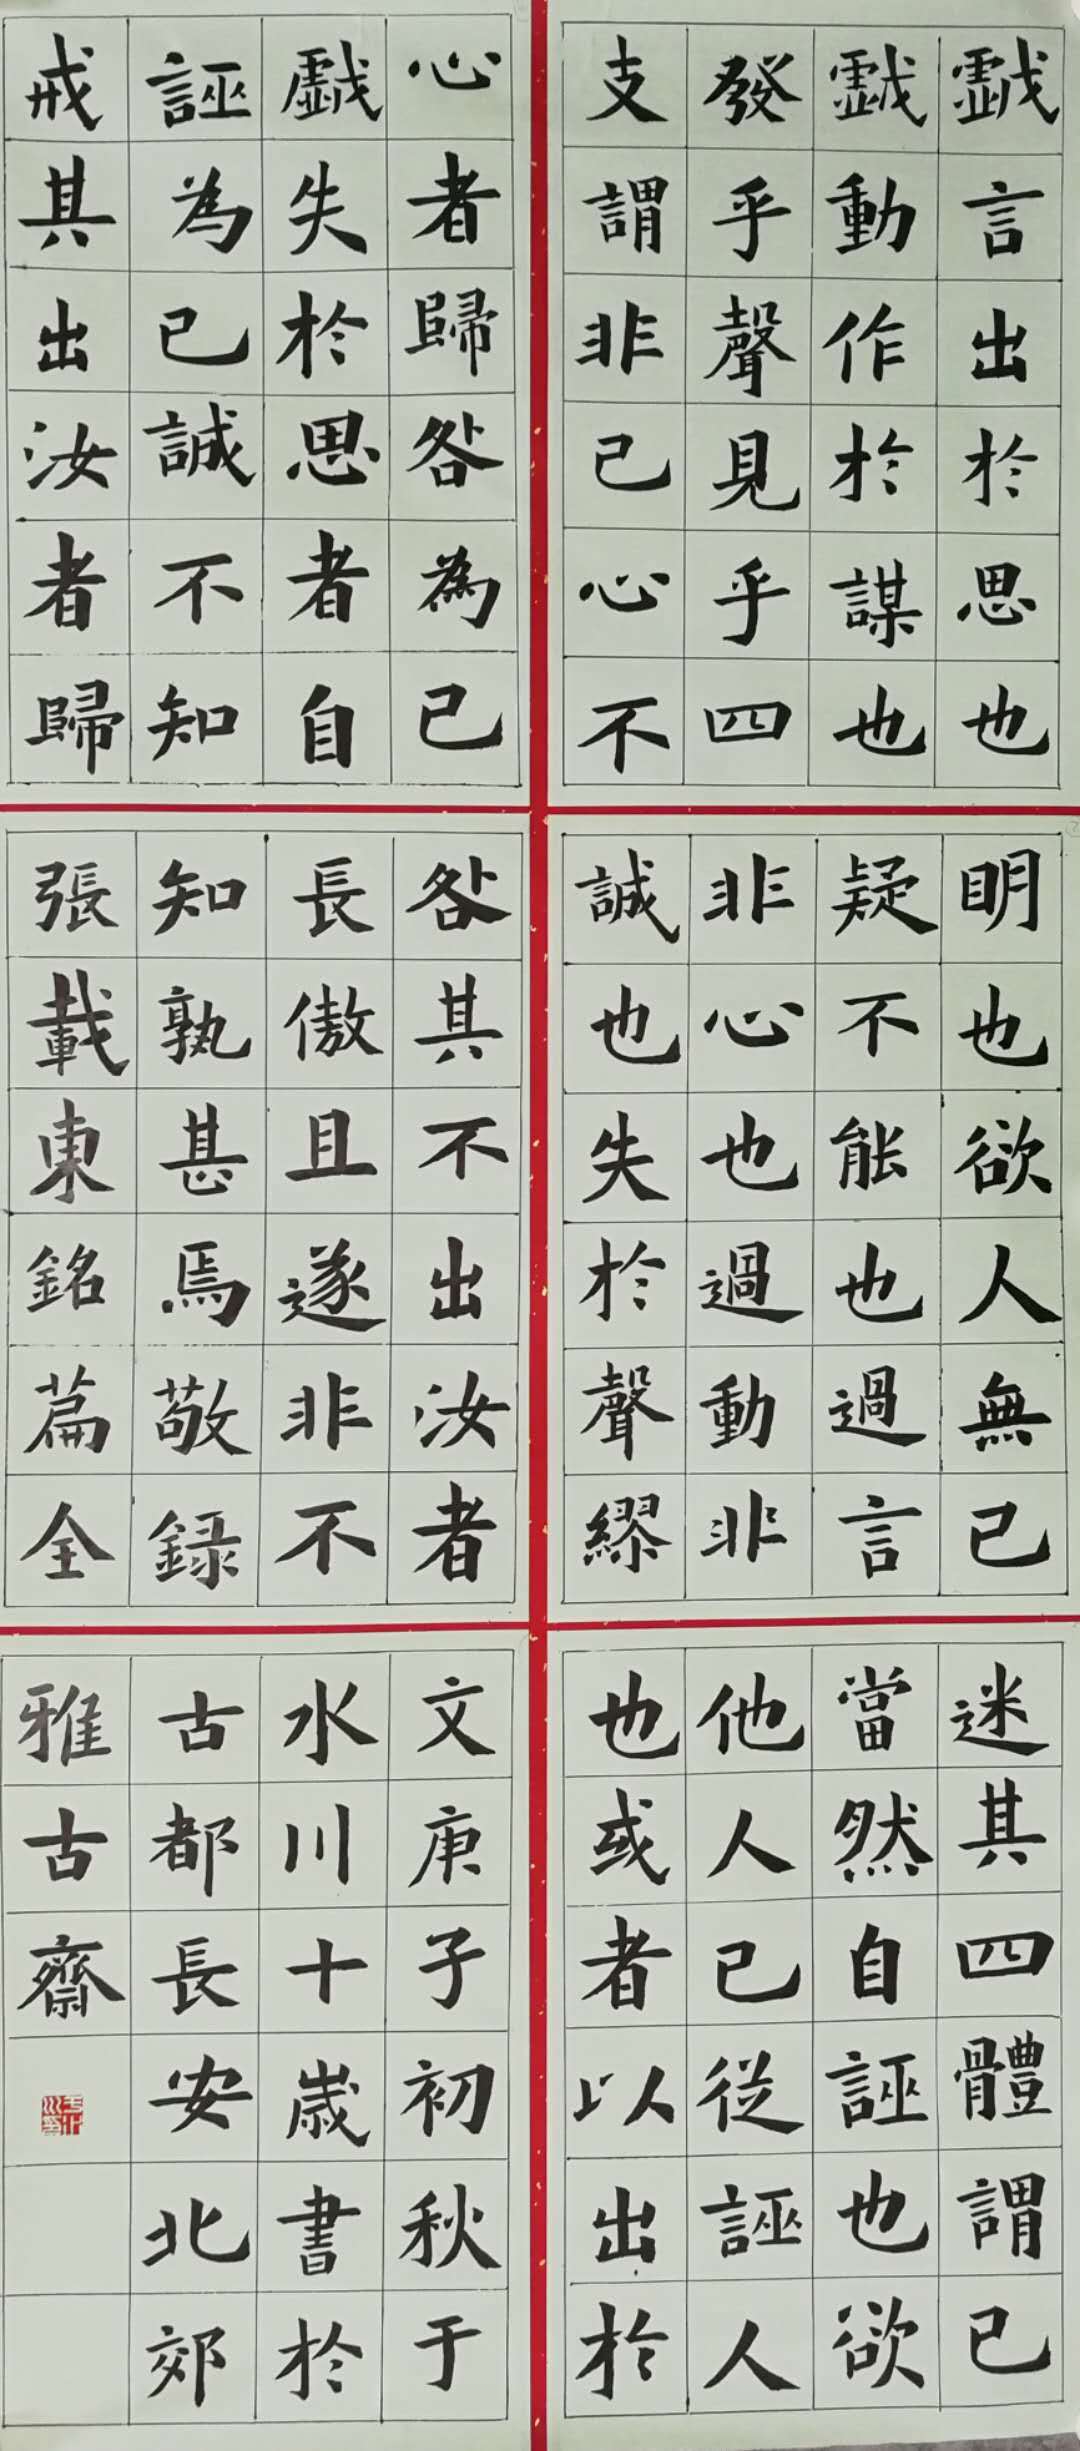 戲言出於思也
戲動作於謀也
發乎聲見乎四
支謂非己心不
明也欲人無己
疑不能也過言
非心也過動非
誠也失於聲繆
迷其四體謂己
當然自誣也欲
他人己從誣人
也或者以出於
心者歸咎為己
戲失於思者自
誣為己誠不知
戒其出汝者歸
咎其不出汝者
長傲且遂非不
知孰甚焉敬錄
張載東銘篇全
文庚子初秋于
水川十歲書於
古都長安北郊
雅古齋